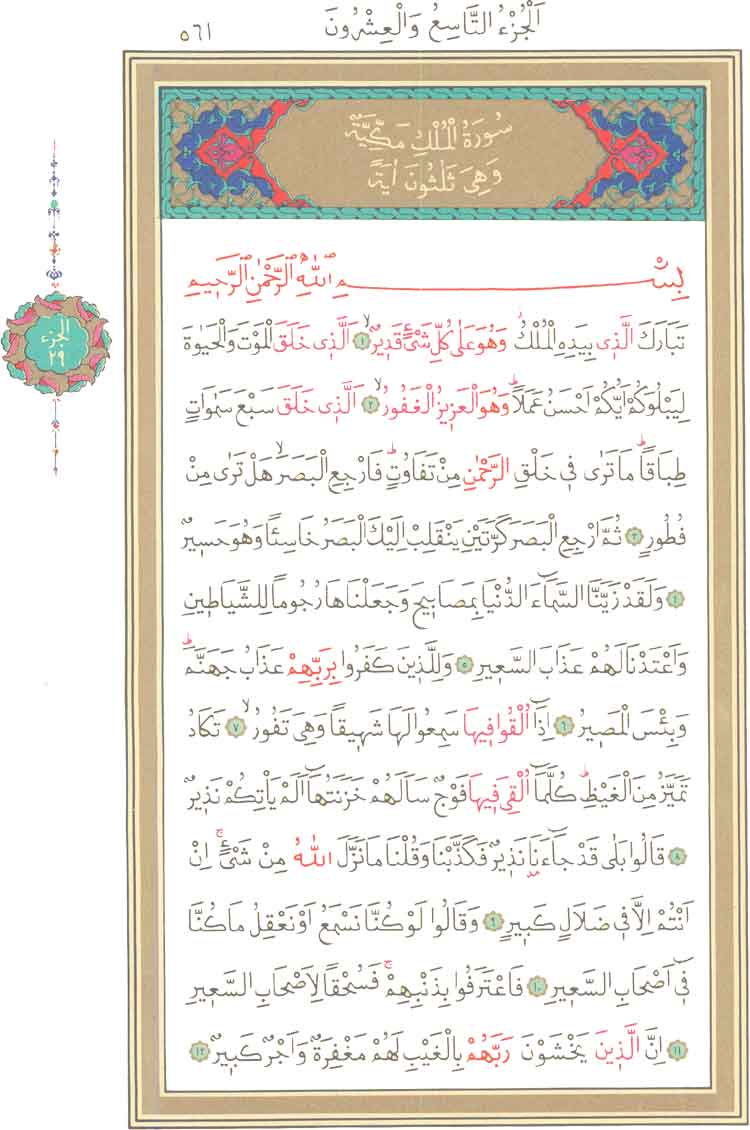 اَلْجُزْءُ التَّاسِعُ وَالْعِشْرُونَ
٥٦١
سُورَةُ الْمُلْكِ مَكِّيَّةٌ
وَهِيَ ثَلٰثُونَ اٰيَةً
الجزء
٢٩
بِسْمِ اللّٰهِ الرَّحْمٰنِ الرَّحِيمِ
تَبَارَكَ الَّذِي بِيَدِهِ الْمُلْكُۘ وَهُوَ عَلٰى كُلِّ شَيْءٍ قَدِيرٌۙ ١ اَلَّذِي خَلَقَ الْمَوْتَ وَالْحَيٰوةَ
لِيَبْلُوَكُمْ اَيُّكُمْ اَحْسَنُ عَمَلاًۜ وَهُوَ الْعَزِيزُ الْغَفُورُۙ ٢ اَلَّذِي خَلَقَ سَبْعَ سَمٰوَاتٍ
طِبَاقاًۜ مَا تَرٰى فِي خَلْقِ الرَّحْمٰنِ مِنْ تَفَاوُتٍۜ فَارْجِعِ الْبَصَرَۙ هَلْ تَرٰى مِنْ
فُطُورٍ ٣ ثُمَّ ارْجِعِ الْبَصَرَ كَرَّتَيْنِ يَنْقَلِبْ اِلَيْكَ الْبَصَرُ خَاسِئاً وَهُوَ حَسِيرٌ
٤ وَلَقَدْ زَيَّنَّا السَّمَٓاءَ الدُّنْيَا بِمَصَابِيحَ وَجَعَلْنَاهَا رُجُوماً لِلشَّيَاطِينِ
وَاَعْتَدْنَا لَهُمْ عَذَابَ السَّعِيرِ ٥ وَلِلَّذِينَ كَفَرُوا بِرَبِّهِمْ عَذَابُ جَهَنَّمَۜ
وَبِئْسَ الْمَصِيرُ ٦ اِذَٓا اُلْقُوا فِيهَا سَمِعُوا لَهَا شَهِيقاً وَهِيَ تَفُورُۙ ٧ تَكَادُ
تَمَيَّزُ مِنَ الْغَيْظِۜ كُلَّمَٓا اُلْقِيَ فِيهَا فَوْجٌ سَاَلَهُمْ خَزَنَتُهَٓا اَلَمْ يَأْتِكُمْ نَذِيرٌ
٨ قَالُوا بَلٰى قَدْ جَٓاءَنَا نَذِيرٌ فَكَذَّبْنَا وَقُلْنَا مَا نَزَّلَ اللّٰهُ مِنْ شَيْءٍۚ اِنْ
اَنْتُمْ اِلَّا فِي ضَلَالٍ كَبِيرٍ ٩ وَقَالُوا لَوْ كُنَّا نَسْمَعُ اَوْ نَعْقِلُ مَا كُنَّا
فِٓي اَصْحَابِ السَّعِيرِ ١٠ فَاعْتَرَفُوا بِذَنْبِهِمْۚ فَسُحْقاً لِاَصْحَابِ السَّعِيرِ
١١ اِنَّ الَّذِينَ يَخْشَوْنَ رَبَّهُمْ بِالْغَيْبِ لَهُمْ مَغْفِرَةٌ وَاَجْرٌ كَبِيرٌ ١٢